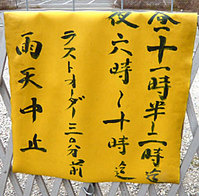 昼十一時半〜二時迄
夜六時〜十時迄
ラストオーダー三〇分前
雨天中止